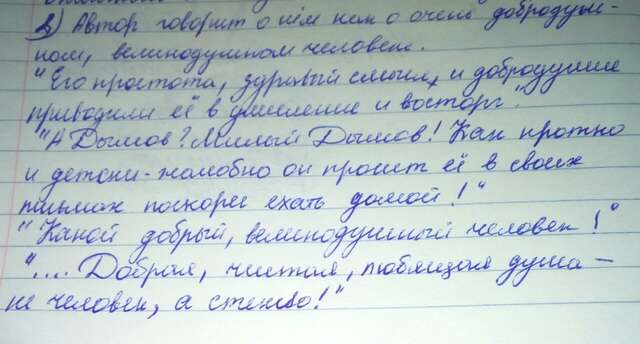 в) Автор говорит о нём как о очень добродуш-
ном, великодушном человеке.
"Его простота, здравый смысл, и добродушие
приводили её в умиление и восторг".
"А Дымов? Милый Дымов! Как кротко
и детски-жалобно он просит её в своих
письмах поскорее ехать домой!"
"Какой добрый, великодушный человек!"
".... Добрая, чистая, любящая душа –
не человек, а стекло!"